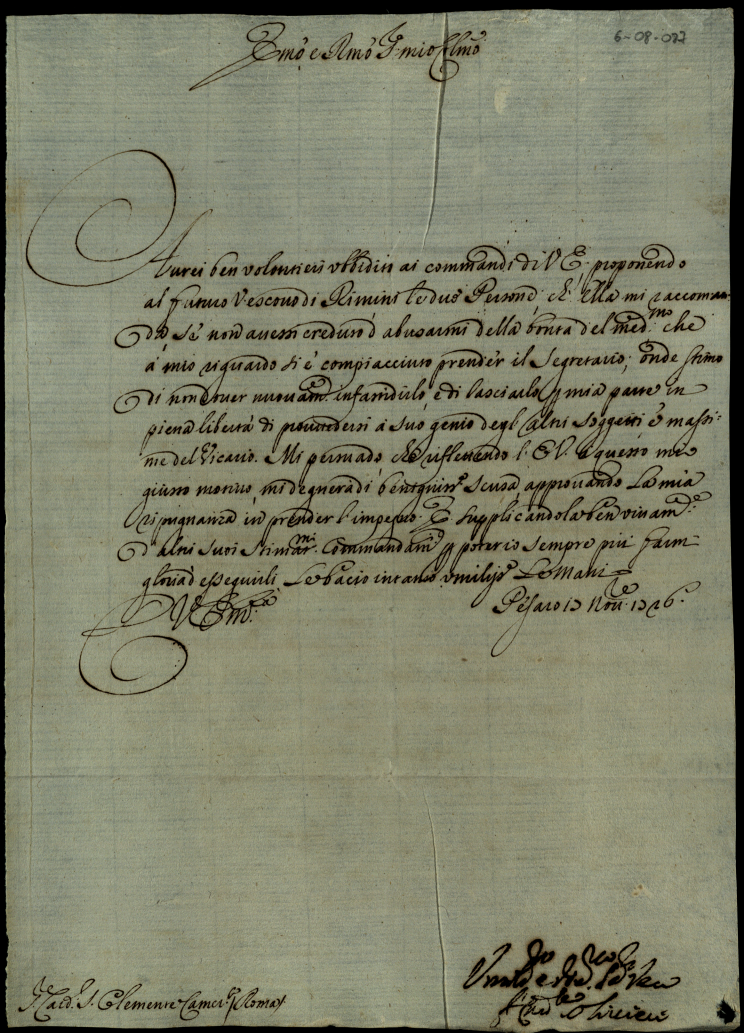 6-08-032
Emõ e Rmõ Sr mio Ossmõ
Aurei ben volontieri ubbidito ai commandi di V E. proponendo
al futuro Vescovo di Rimini le due Persone, ch'ella mi raccoman-
da, se non avessi creduto d'abusarmi della bontà del medmo che
à mio riguardo si è compiacciuto prender il Segretario; onde stimo
di non dover nuovamte infastidirlo, e di lasciarlo p mia parte in
piena libertà di provedersi à suo genio degl'altri soggetti e massi-
me del Vicario. Mi persuado che riflettendo l'E V. a questo mio
giusto motivo, mi degnerà di benignissa scusa approvando la mia
ripugnanza in prender l'impegno. E supplicandola ben vivamte
d'altri suoi stimatmi commandamti p poter io sempre più farmi
gloria d'esseguirli, le bacio intanto umilissте le Mani
D V Emza Pesaro 13 Nove 1726.
Sr Card. S. Clemente Camerlo Roma
Umilmo e Devmo Servitor